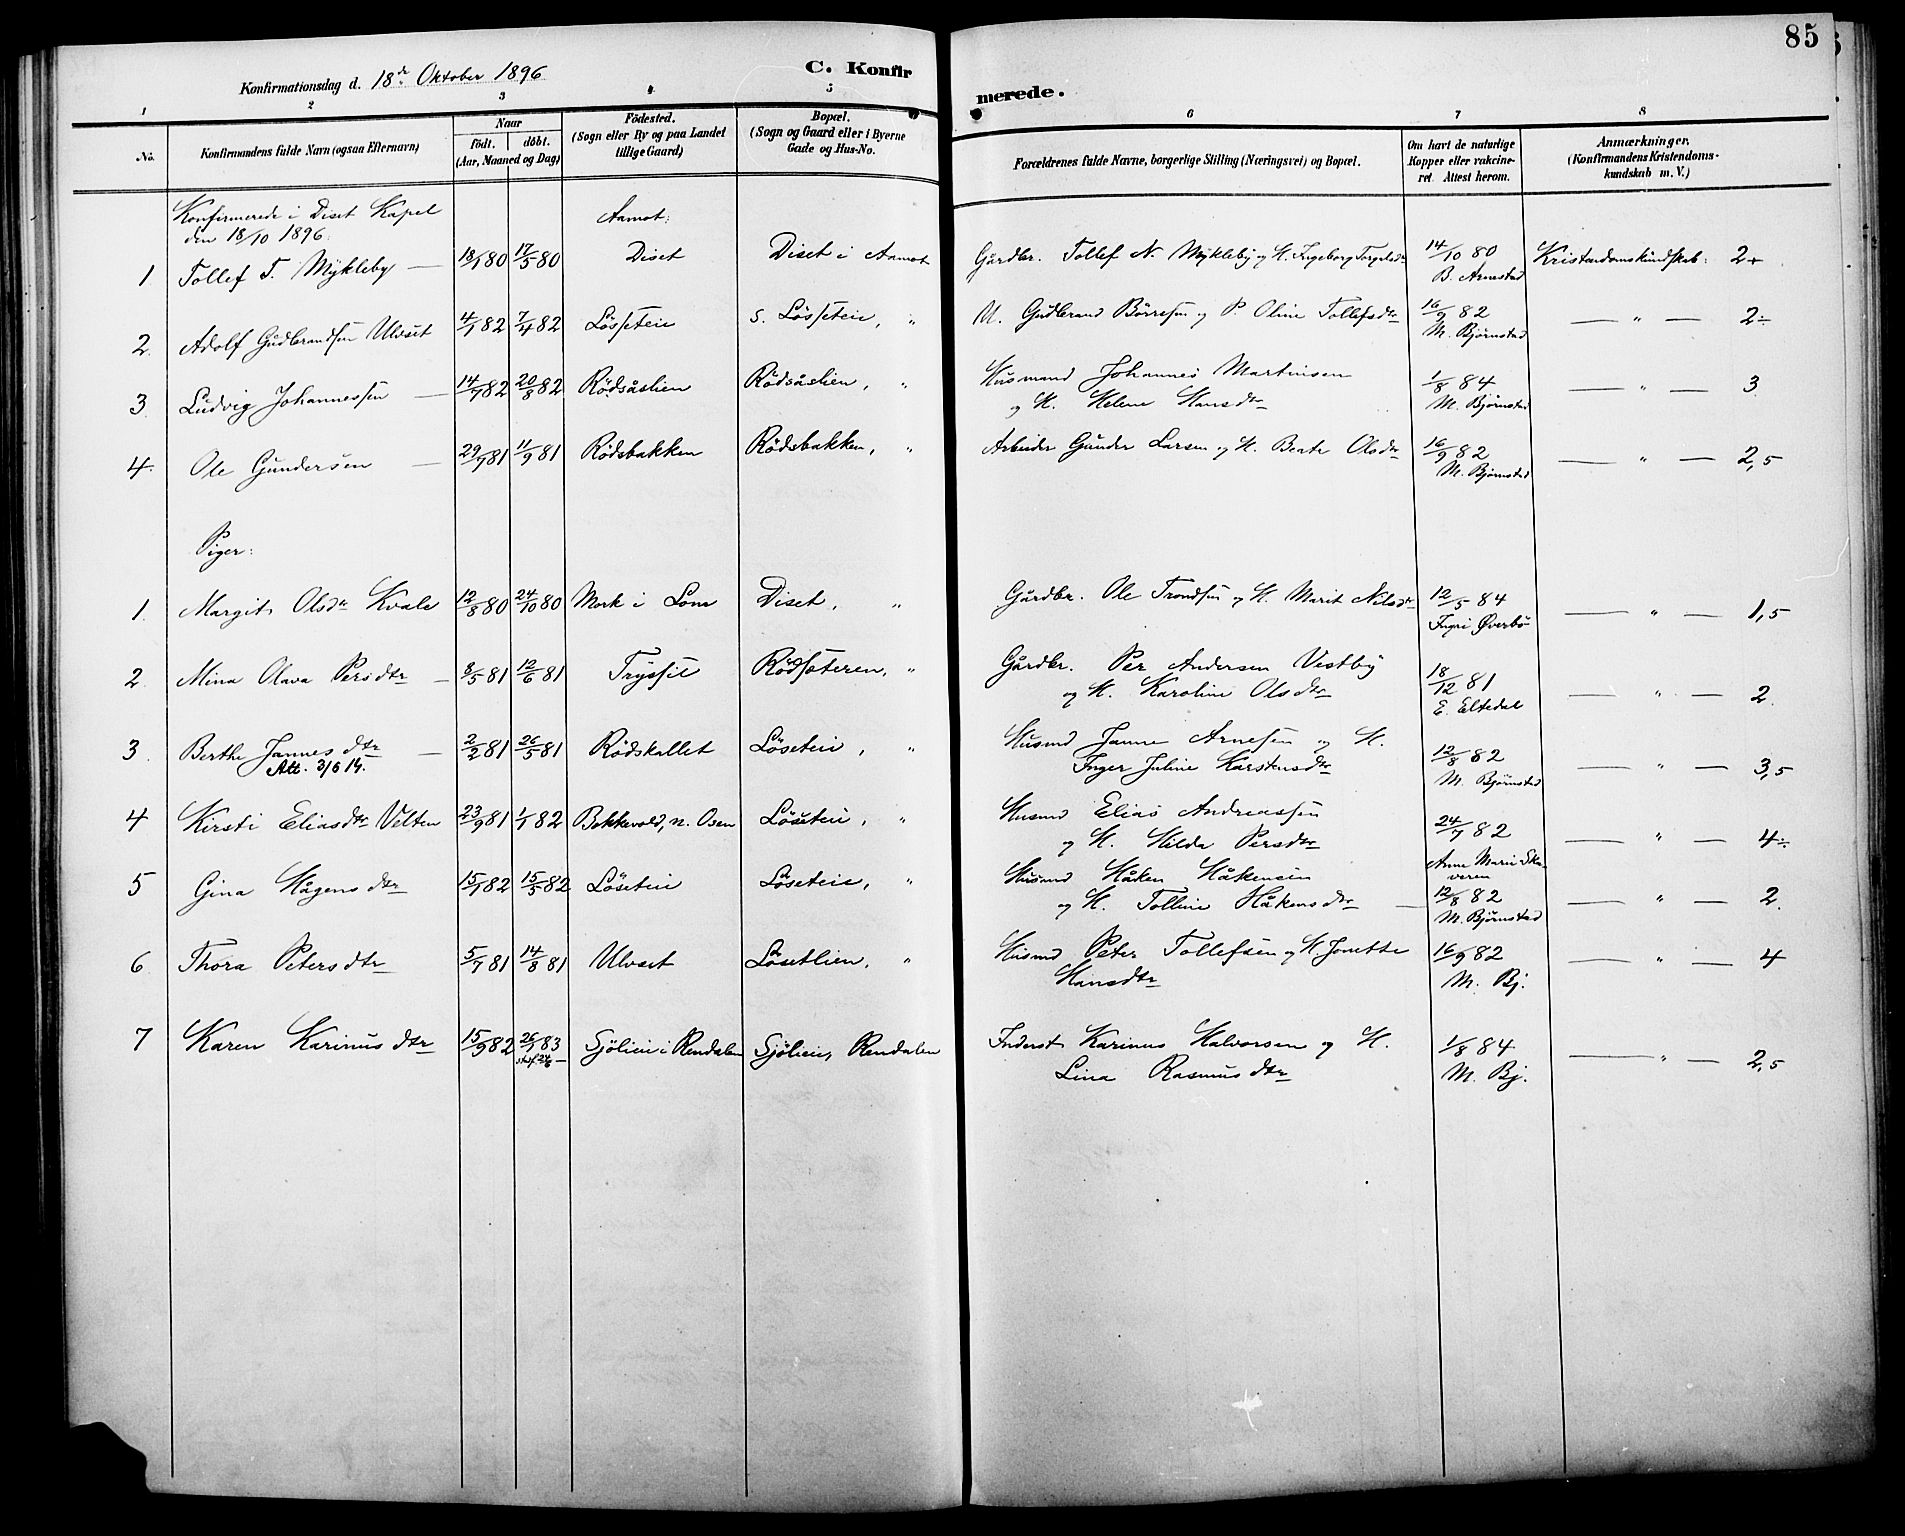 85
Konfirmationsdag d. 18de Oktober 1896
C. Konfirmerede.
1 2 3 4 5 6 7 8
No. Konfirmandens fulde Navn (ogsaa Efternavn) Naar födt. döbt. (Aar, Maaned og Dag) Födested. (Sogn eller By og paa Landet tillige Gaard) Bopæl. (Sogn og Gaard eller i Byerne Gade og Hus-No. Forældrenes fulde Navne, borgerlige Stilling (Næringsvei) og Bopæl. Om havt de naturlige Kopper eller vakcineret Attest herom. Anmærkninger. (Konfirmandens Kristendomskundskab m. V.)
Konfirmerede i Diset Kapel Aamot:
den 18/10 1896.
1 Tollef T. Mykleby — 18/1 80 17/5 80 Diset Diset i Aamot Gårdbr. Tollef N. Mykleby og H. Ingeborg Torgelsdtr 14/10 80 Kristendomskundskab: 2+
B. Arnestad
2. Adolf Gudbrandsen Ulvset 4/1 82 7/4 82 Lösseteie S. Lösseteie, „ U. Gudbrand Börresen og P. Oline Tollefsdtr 16/9 82 — „ — 2÷
M. Bjørnstad
3. Ludvig Johannessen — 14/7 82 20/8 82 Rödsåslien Rödsåslien, „ Husmand Johannes Martinsen 1/8 84 — „ — 3
og H. Helene Hansdtr M. Bjørnstad
4. Ole Gundersen — 29/7 81 11/9 81 Rödsbakken Rödsbakken, „ Arbeider Gunder Larsen og H. Beate Olsdtr 16/9 82 — „ — 2,5
M. Bjørnstad
Piger:
1. Margit Olsdtr Kvale 12/8 80 24/10 80 Mork i Lom Diset, „ Gårdbr. Ole Trondsen og H. Marit Nilsdtr 12/5 84 — „ — 1,5
Ingri Øverbö
2. Mina Olava Persdtr — 8/5 81 12/6 81 Trysil Rödsæteren, „ Gårdbr. Per Andersen Vestby 18/12 81 — „ — 2.
og H. Karoline Olsdtr E. Eltedal
3. Berthe Jannesdtr — 2/2 81 26/5 81 Rödskallet Löseteie, „ Husmd Janne Arnesen og H. 12/8 82 — „ — 3,5
Att. 3/6 14. Inger Juline Karstensdtr M. Bjørnstad
4 Kirsti Eliasdtr Velten 23/9 81 1/1 82 Bekkevold, n. Osen Löseteie, „ Husmd Elias Andreassen 24/7 82 — „ — 4÷
og H. Hilda Persdtr Anne Marie Skaveren
5 Gina Hågensdtr 15/1 82 15/5 82 Löseteie Löseteie, „ Husmd Håken Håkensen 12/8 82 — „ — 2.
og H. Tolline Håkensdtr — M. Bjørnstad
6 Thora Petersdtr 5/7 81 14/8 81 Ulvset Lösetlien, „ Husmd Peter Tollefsen og H. Jonette 16/9 82 — „ — 4
Hansdtr M. Bj.
7 Karen Karinusdtr 15/9 82 26/1 83 Sjölien i Rendalen Sjölien, Rendalen Inderst Karinus Halvorsen og H. 1/8 84 — „ — 2,5
Lina Rasmusdtr M. Bj.